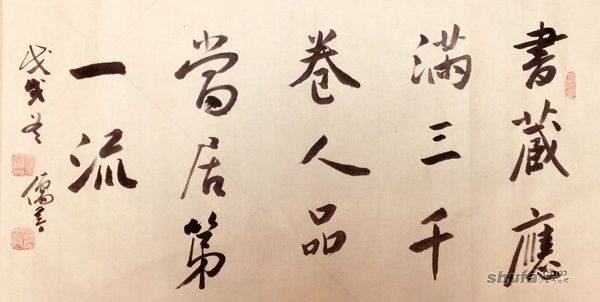 書藏應
滿三千
卷人品
當居第
一流
戊戌冬
儒美
shufa.com